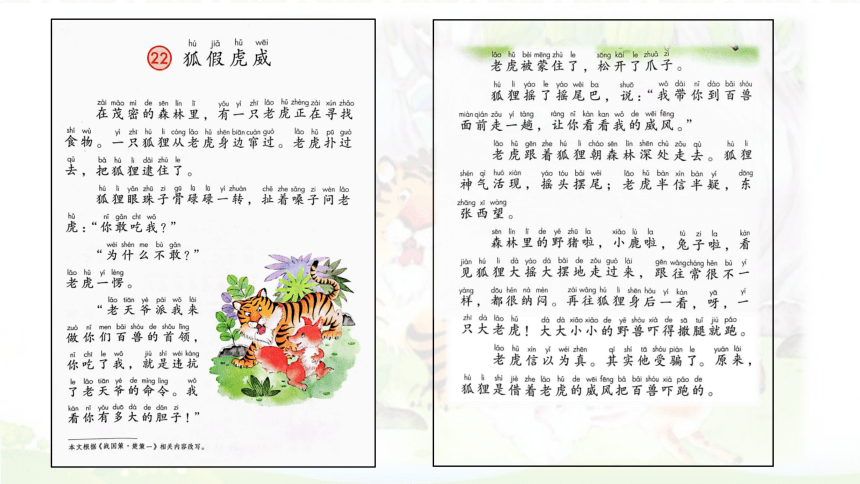 hú jiǎ hǔ wēi
22 狐假虎威
zài mào mì de sēn lín lǐ yǒu yì zhī lǎo hǔ zhèng zài xún zhǎo
在茂密的森林里，有一只老虎正在寻找
shí wù yì zhī hú li cóng lǎo hǔ shēn biān cuàn guò lǎo hǔ pū guò
食物。一只狐狸从老虎身边窜过。老虎扑过
qù bǎ hú li dǎi zhù le
去，把狐狸逮住了。
hú li yǎn zhū zi gū lù lù yì zhuàn chě zhe sǎng zi wèn lǎo
狐狸眼珠子骨碌碌一转，扯着嗓子问老
hǔ nǐ gǎn chī wǒ
虎：“你敢吃我？”
wèi shén me bù gǎn
“为什么不敢？”
lǎo hǔ yí lèng
老虎一愣。
lǎo tiān yé pài wǒ lái
“老天爷派我来
zuò nǐ men bǎi shòu de shǒu lǐng
做你们百兽的首领，
nǐ chī le wǒ jiù shì wéi kàng
你吃了我，就是违抗
le lǎo tiān yé de mìng lìng wǒ
了老天爷的命令。我
kàn nǐ yǒu duō dà de dǎn zi
看你有多大的胆子！”
本文根据《战国策·楚策一》相关内容改写。
lǎo hǔ bèi mēng zhù le sōng kāi le zhuǎ zi
老虎被蒙住了，松开了爪子。
hú li yáo le yáo wěi ba shuō wǒ dài nǐ dào bǎi shòu
狐狸摇了摇尾巴，说：“我带你到百兽
miàn qián zǒu yí tàng ràng nǐ kàn kan wǒ de wēi fēng
面前走一趟，让你看看我的威风。”
lǎo hǔ gēn zhe hú li cháo sēn lín shēn chù zǒu qù hú li
老虎跟着狐狸朝森林深处走去。狐狸
shén qì huó xiàn yáo tóu bǎi wěi lǎo hǔ bàn xìn bàn yí dōng
神气活现，摇头摆尾；老虎半信半疑，东
zhāng xī wàng
张西望。
sēn lín lǐ de yě zhū la xiǎo lù la tù zi la kàn
森林里的野猪啦，小鹿啦，兔子啦，看
jiàn hú li dà yáo dà bǎi de zǒu guò lái gēn wǎng cháng hěn bù yí
见狐狸大摇大摆地走过来，跟往常很不一
yàng dōu hěn nà mèn zài wǎng hú li shēn hòu yí kàn yā yì
样，都很纳闷。再往狐狸身后一看，呀，一
zhī dà lǎo hǔ dà dà xiǎo xiǎo de yě shòu xià de sā tuǐ jiù pǎo
只大老虎！大大小小的野兽吓得撒腿就跑。
lǎo hǔ xìn yǐ wéi zhēn qí shí tā shòu piàn le yuán lái
老虎信以为真。其实他受骗了。原来，
hú li shì jiè zhe lǎo hǔ de wēi fēng bǎ bǎi shòu xià pǎo de
狐狸是借着老虎的威风把百兽吓跑的。